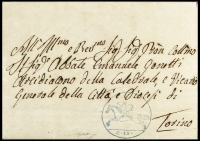 All' Ill.mo e Rev.mo Sig. Sig. Pron Col.mo
Il Sig. Abbate Emanuele Gonetti
Arcidiacono della Cattedrale, e Vicario
Generale della Città, e Diocesi di
Torino